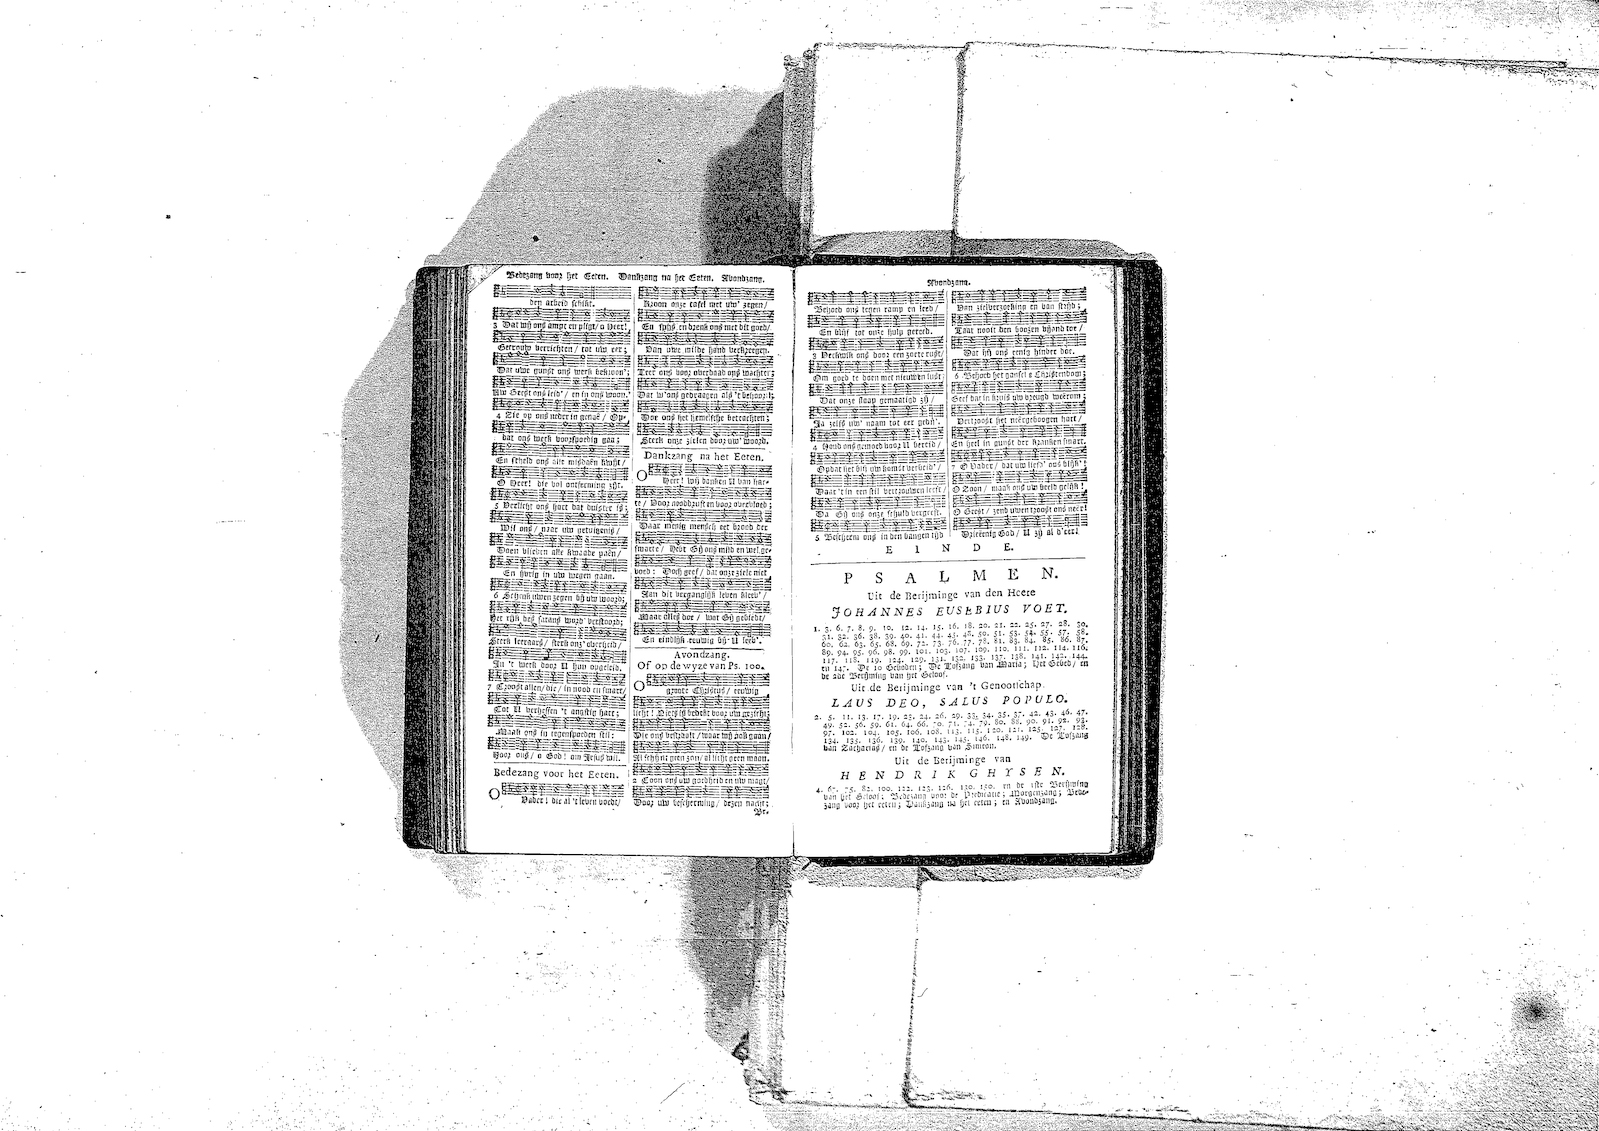 Bedezang voor het Eeten. Dankzang na het Eeten. Avondzang.
den arbeid schikt.
3 Dat wij ons ampt en pligt / o Heer!
Getrouw verrichten / tot uw eer;
Dat uwe gunst ons werk bekroon';
Uw Geest ons leid' / en in ons woon.
4 Zie op ons neder in genae / Op-
dat ons werk voorspoedig gaa;
En scheld ons alle misdaên kwijt /
O Heer! die vol ontferming zijt.
5 Verlicht ons hart dat duister is;
Wil ons / naar uw getuigenis /
Doen vlieden alle kwaade paên /
En ijvrig in uw wegen gaan.
6 Schenk uwen zegen bij uw woord;
Het rijk des satans word' verstoord;
Sterk leeraars / sterk onz' overheid /
In 't werk door U hun opgeleid.
7 Troost allen / die / in nood en smart /
Tot U verheffen 't angstig hart;
Maak ons in tegenspoeden stil:
Hoor ons / o God! om Jesus wil.
Bedezang voor het Eeten.
O Vader! die al 't leven voedt /
Kroon onze tafel met uw' zegen /
En spijs en drenk ons met dit goed /
Van uwe milde hand verkreegen.
Leer ons voor overdaad ons wachten;
Dat w' ons gedraagen als 't behoort;
Doe ons het hemelsche betrachten;
Sterk onze zielen door uw' woord.
Dankzang na het Eeten.
O Heer! wij danken U van har-
te / Voor nooddruft en voor overvloed;
Daar menig mensch eet brood der
smarte / Hebt Gij ons mild en wel ge-
voed: Doch geef / dat onze ziele niet
Aan dit vergangklijk leven kleev' /
Maar alles doe / wat Gij gebiedt /
En eindlijk eeuwig bij U leev'.
Avondzang.
Of op de wyze van Ps. 100.
O groote Christus / eeuwig
licht! Niets is bedekt voor uw gezicht;
Die ons bestraalt / waar wij ook gaan /
Al schijnt geen zon / al licht geen maan.
2 Toon ons uw goedheid en uw magt /
Door uw bescherming / dezen nacht;
Be-
Avondzang.
Behoed ons tegen ramp en leed /
En blijf tot onze hulp gereed.
3 Verkwik ons door een zoete rust /
Om goed te doen met nieuwen lust:
Dat onze slaap gemaatigd zij /
Ja zelfs uw' naam tot eer gedij'.
4 Houd ons gemoed voor U bereid /
Opdat het blij uw komst verbeid' /
Daar 't in een stil vertrouwen leeft /
Da Gij ons onze schuld vergeeft.
5 Bescherm ons in den bangen tijd
Van zielverzoeking en van strijd;
Laat nooit den boozen vijand toe /
Dat hij ons eenig hinder doe.
6 Behoed het gansche Christendom;
Geef dat in kruis uw vreugd weerom;
Vertroost het neergeboogen hart /
En heel in gunst der kranken smart.
7 O Vader / dat uw liefd' ons blijk';
O Zoon / maak ons uw beeld gelijk!
O Geest / zend uwen troost ons neer!
Drieëenig God / U zij al d'eer!
EINDE.
PSALMEN.
Uit de Berijminge van den Heere
JOHANNES EUSEBIUS VOET.
1. 3. 6. 7. 8. 9. 10. 12. 14. 15. 16. 18. 20. 21. 22. 25. 27. 28. 30.
31. 32. 36. 38. 39. 40. 41. 44. 45. 48. 50. 51. 53. 54. 55. 57. 58.
60. 62. 63. 65. 68. 69. 72. 73. 76. 77. 78. 81. 83. 84. 85. 86. 87.
89. 94. 95. 96. 98. 99. 101. 103. 107. 109. 110. 111. 112. 114. 116.
117. 118. 119. 124. 129. 131. 132. 133. 137. 138. 141. 142. 144.
en 147. De 10 Geboden; De Lofzang van Maria; Het Gebed / en
de 2de Berijming van het Geloof.
Uit de Berijminge van 't Genootschap.
LAUS DEO, SALUS POPULO.
2. 5. 11. 13. 17. 19. 23. 24. 26. 29. 33. 34. 35. 37. 42. 43. 46. 47.
49. 52. 56. 59. 61. 64. 66. 70. 71. 74. 79. 80. 88. 90. 91. 92. 93.
97. 102. 104. 105. 106. 108. 113. 115. 120. 121. 125. 127. 128.
134. 135. 136. 139. 140. 143. 145. 146. 148. 149. De Lofzang
van Zacharias / en de Lofzang van Simeon.
Uit de Berijminge van
HENDRIK GHYSEN.
4. 67. 75. 82. 100. 122. 123. 126. 130. 150. en de 1ste Berijming
van het Geloof; Bedezang voor de Predicatie; Morgenzang; Bede-
zang voor het eeten; Dankzang na het eeten; en Avondzang.